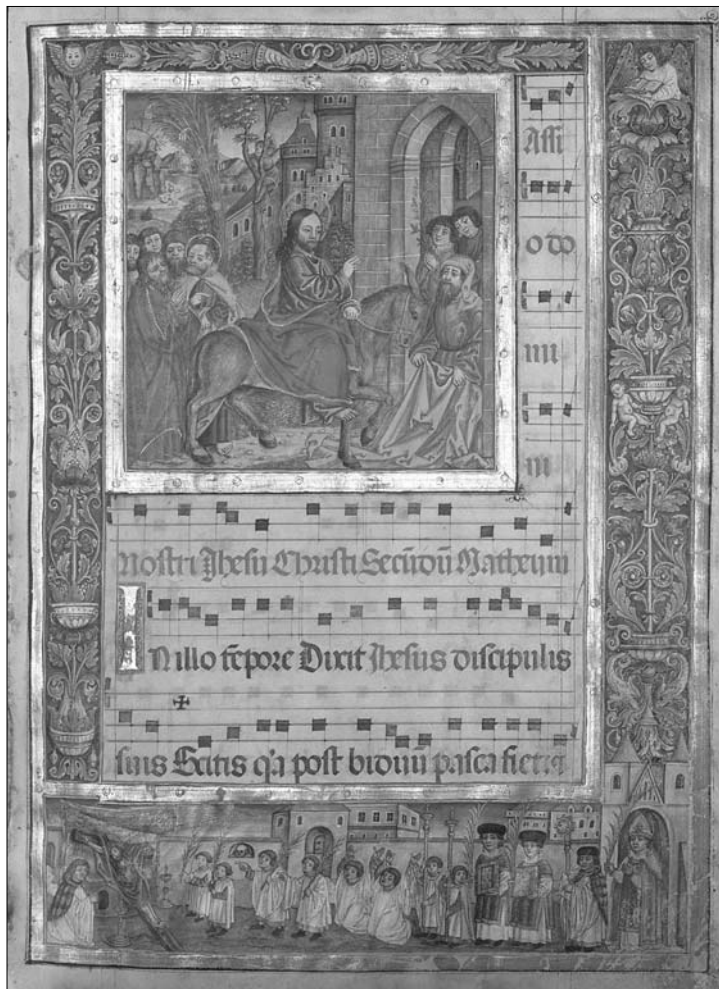 Assi
o do
mi
ni
nostri Jhesu Christi Secūdū Matheum
IN illo tēpore Dixit Jhesus discipulis
suis Scitis q'a post biduū pasca fiet